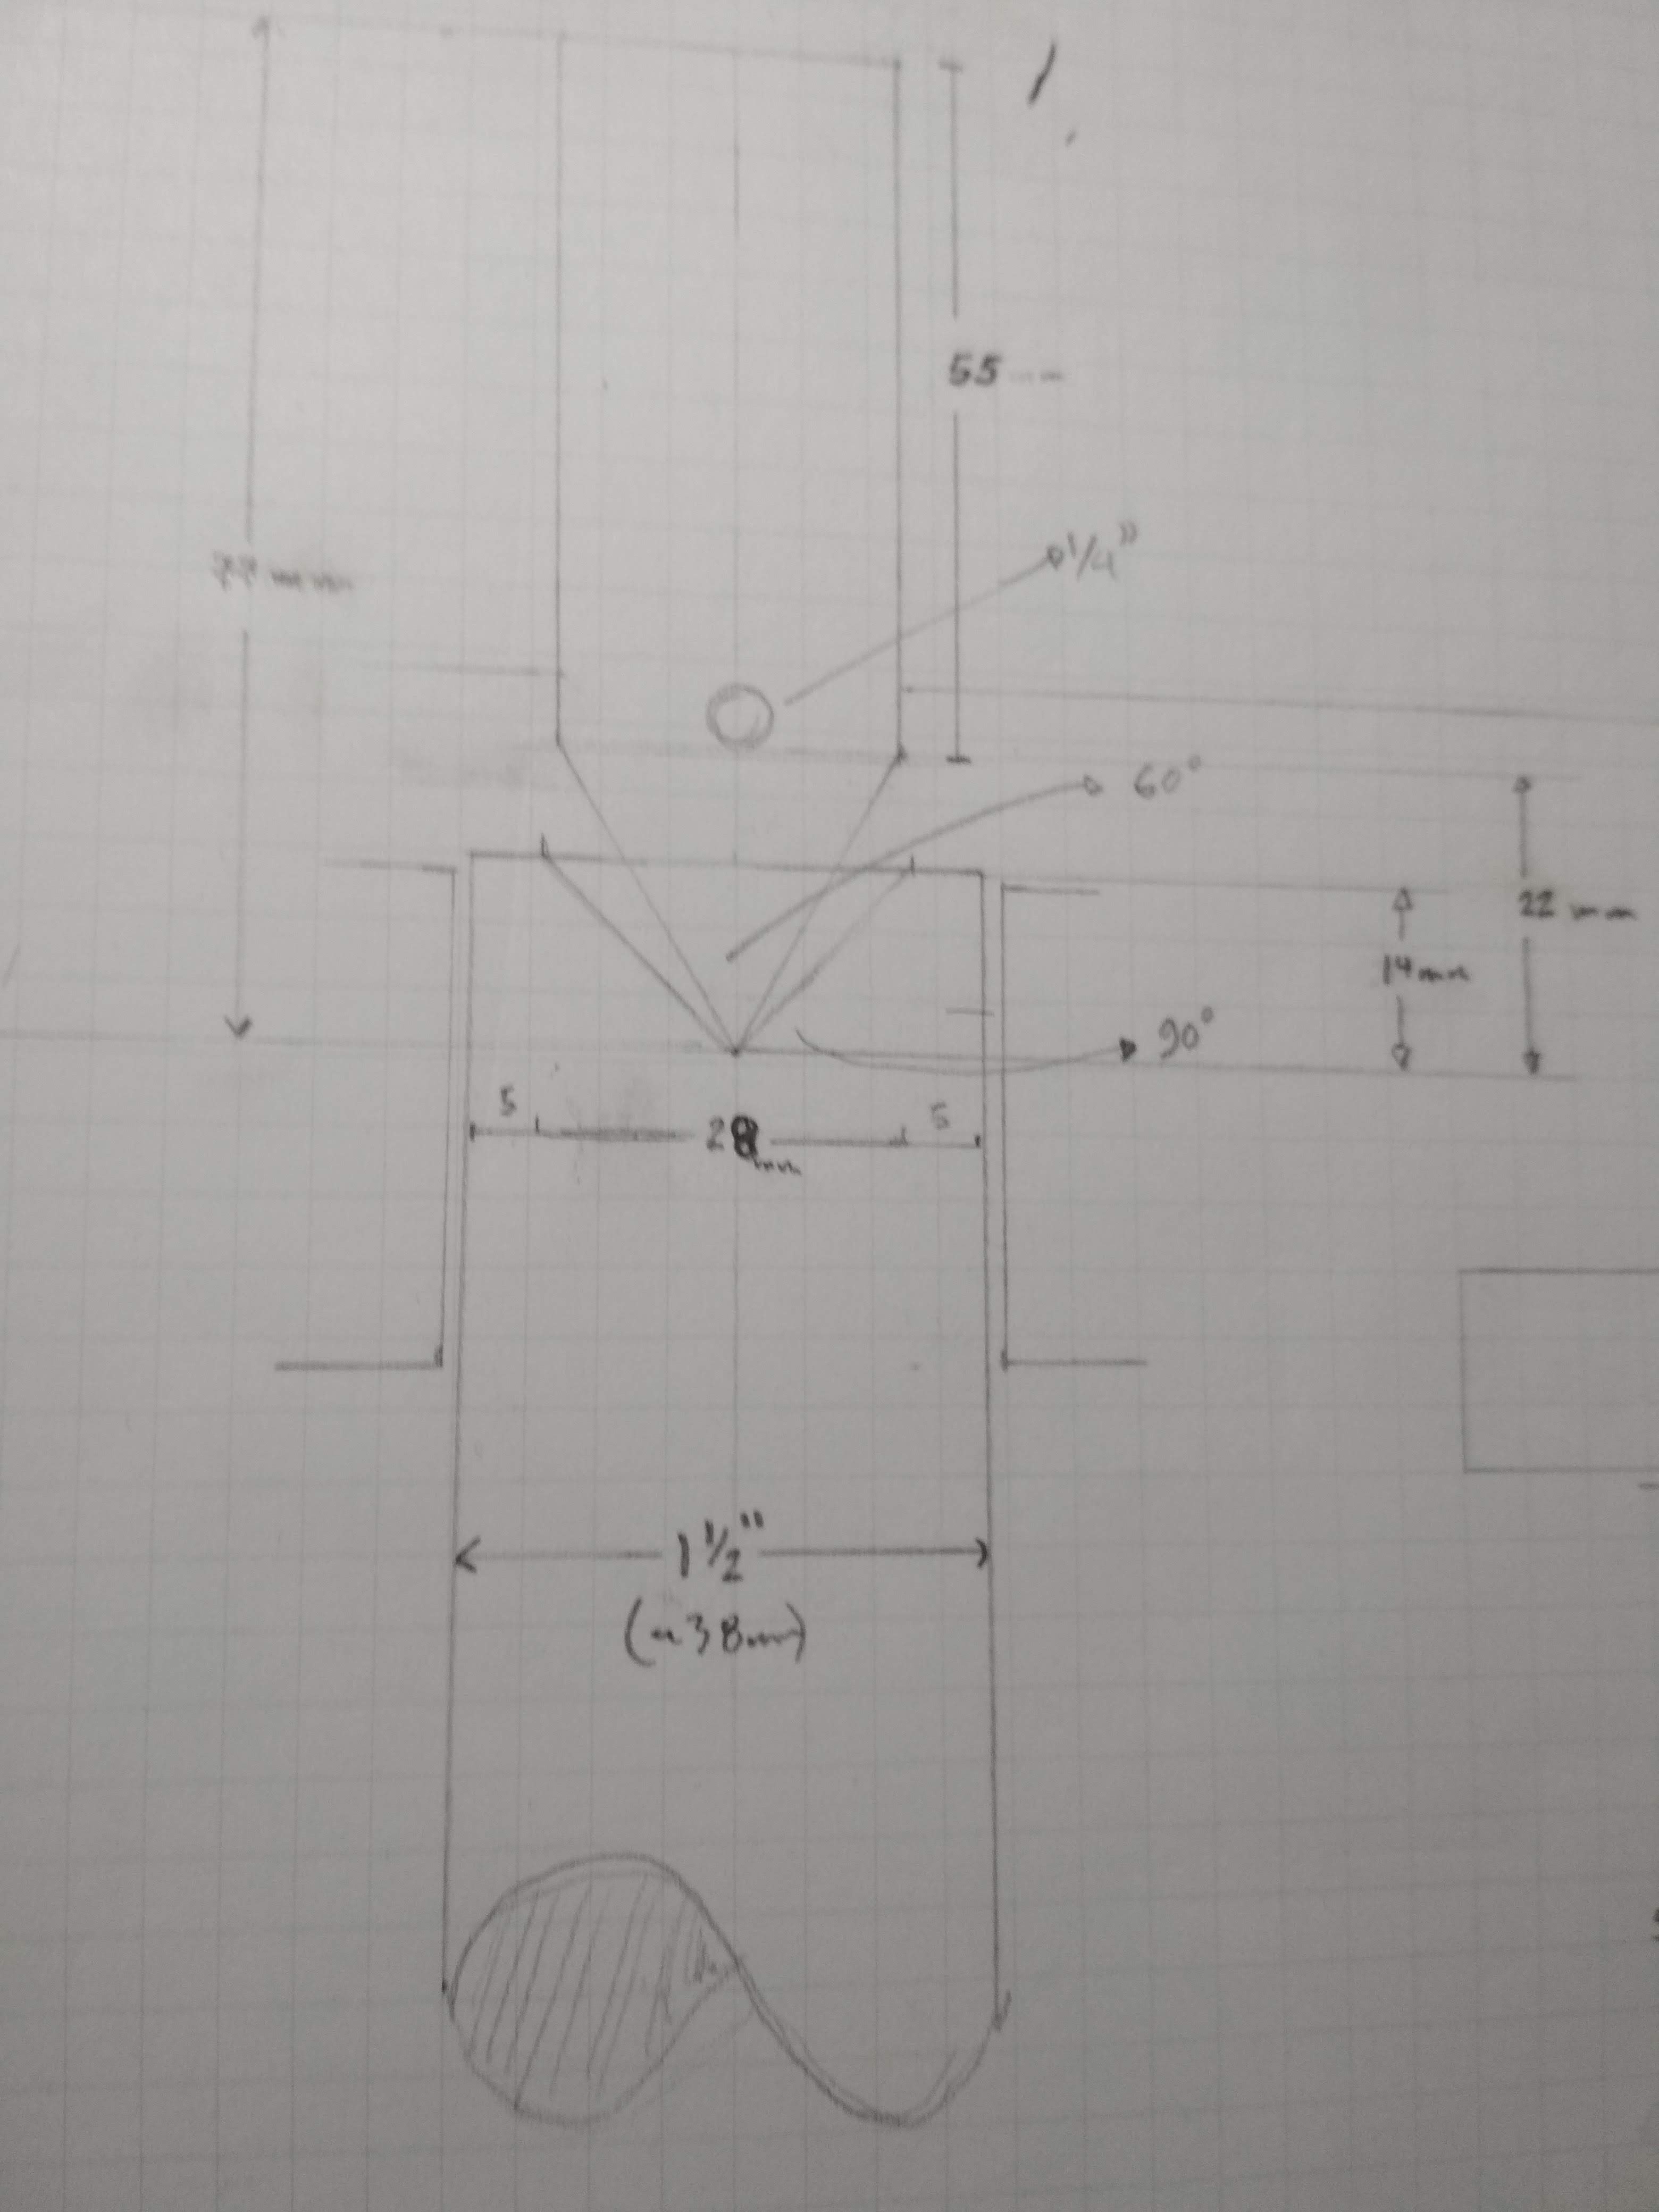 55
1/4"
77 mm
60°
22 mm
14 mm
90°
5
28 mm
5
1 1/2"
(~38mm)